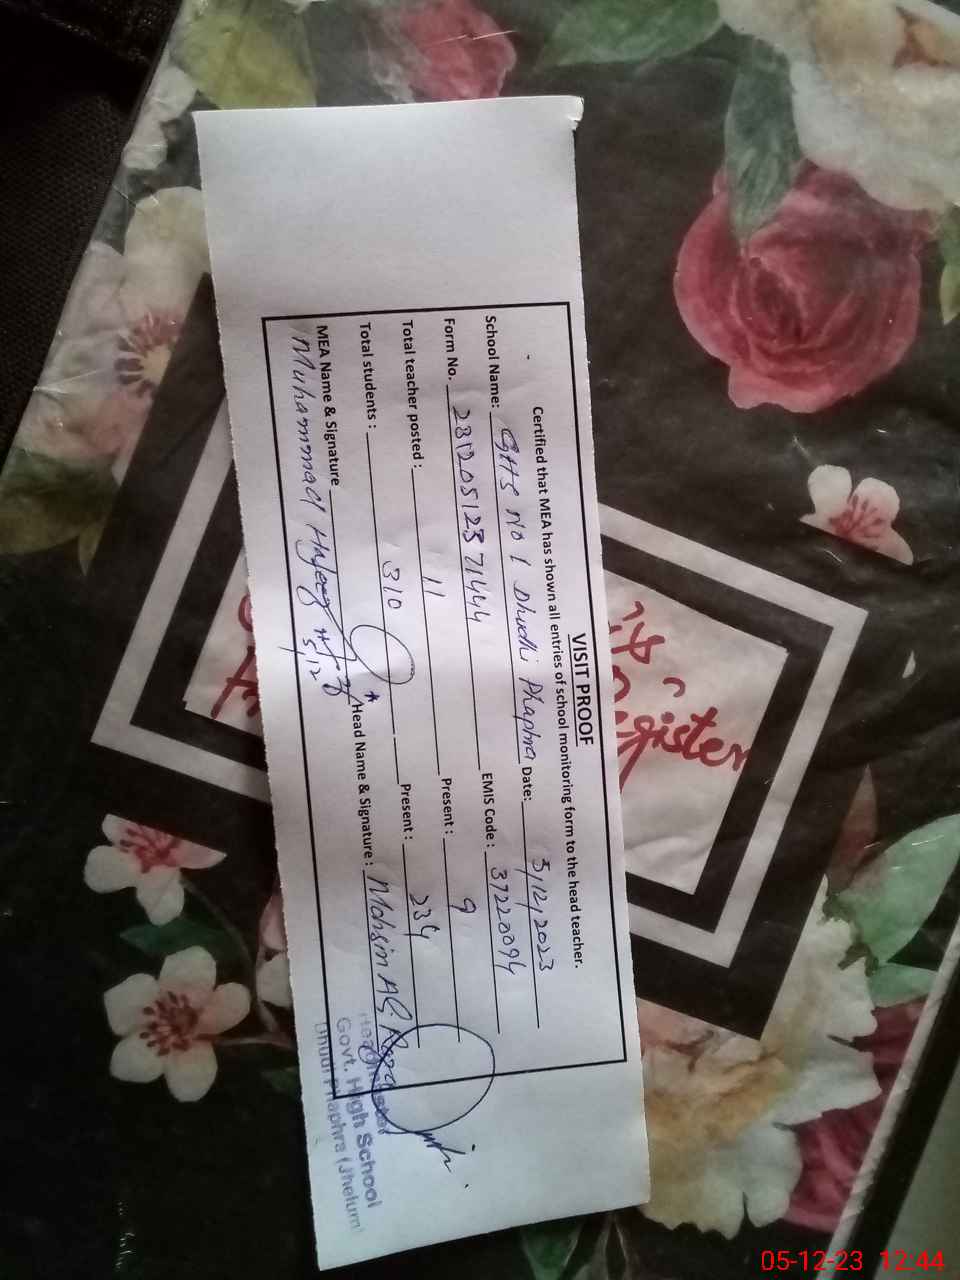 VISIT PROOF
Certified that MEA has shown all entries of school monitoring form to the head teacher.
School Name: GHS No 1 Dhudhi Phaphra Date: 5/12/2023
Form No. EMIS Code: 37220094
Total teacher posted: 11 Present: 9
Total students: 310 Present: 234
MEA Name & Signature Head Name & Signature: Mohsin Ali Raza
Muhammad Hafeez
5/12
Headmaster
Govt. High School
Dhudi Phaphra (Jhelum)
Register
05-12-23 12:44